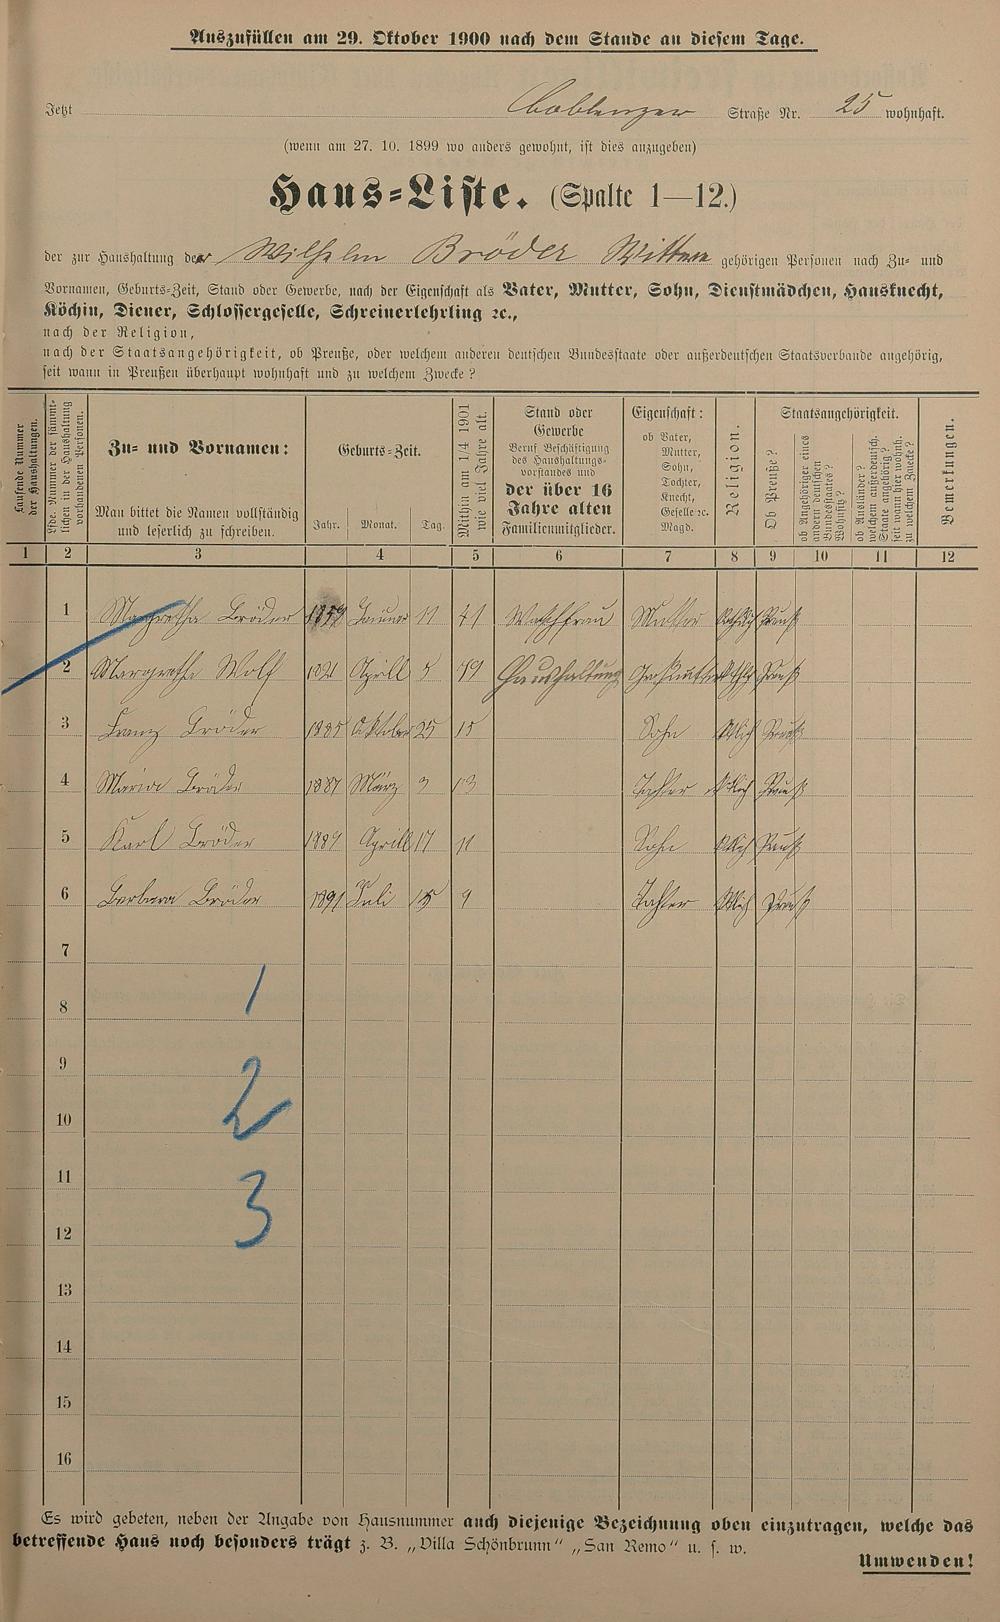 Auszufüllen am 29. Oktober 1900 nach dem Stande an diesem Tage.
Jetzt Coblenzer Straße Nr. 25 wohnhaft.
(wenn am 27. 10. 1899 wo anders gewohnt, ist dies anzugeben)
Haus-Liste. (Spalte 1—12.)
der zur Haushaltung der Wilhelm Bröder Wittwe gehörigen Personen nach Zu- und
Vornamen, Geburts-Zeit, Stand oder Gewerbe, nach der Eigenschaft als Vater, Mutter, Sohn, Dienstmädchen, Hausknecht,
Köchin, Diener, Schlossergeselle, Schreinerlehrling ꝛc.,
nach der Religion,
nach der Staatsangehörigkeit, ob Preuße, oder welchem anderen deutschen Bundesstaate oder außerdeutschen Staatsverbande angehörig,
seit wann in Preußen überhaupt wohnhaft und zu welchem Zwecke?
Laufende Nummer der Haushaltungen.
Lfde. Nummer der sämmtlichen in der Haushaltung vorhandenen Personen.
Zu- und Vornamen:
Man bittet die Namen vollständig
und leserlich zu schreiben.
Geburts-Zeit.
Jahr. Monat. Tag.
Mithin am 1/4 1901 wie viel Jahre alt.
Stand oder
Gewerbe
Beruf Beschäftigung
des Haushaltungs-
vorstandes und
der über 16
Jahre alten
Familienmitglieder.
Eigenschaft:
ob Vater,
Mutter,
Sohn,
Tochter,
Knecht,
Geselle ꝛc.
Magd.
Religion.
Staatsangehörigkeit.
Ob Preuße?
ob Angehöriger eines andern deutschen Bundesstaates? Wohnsitz?
ob Ausländer? welchem außerdeutsch. Staate angehörig? seit wann hier wohnh. zu welchem Zwecke?
Bemerkungen.
1 2 3 4 5 6 7 8 9 10 11 12
1 Margretha Bröder 1859 Januar 11 41 Waschfrau Mutter Kathlich Preuß
2 Margrethe Wolf 1821 Aprill 5 79 Haushaltung Großmutter Kathlich Preuß
3 Franz Bröder 1885 Oktober 25 15 Sohn Ktlich Preuß
4 Maria Bröder 1887 März 3 13 Tochter Ktlich Preuß
5 Karl Bröder 1889 Aprill 17 11 Sohn Ktlich Preuß
6 Barbara Bröder 1891 Juli 15 9 Tochter Ktlich Preuß
7
8 1
9
10 2
11
12 3
13
14
15
16
Es wird gebeten, neben der Angabe von Hausnummer auch diejenige Bezeichnung oben einzutragen, welche das
betreffende Haus noch besonders trägt z. B. „Villa Schönbrunn“ „San Remo“ u. s. w.
Umwenden!